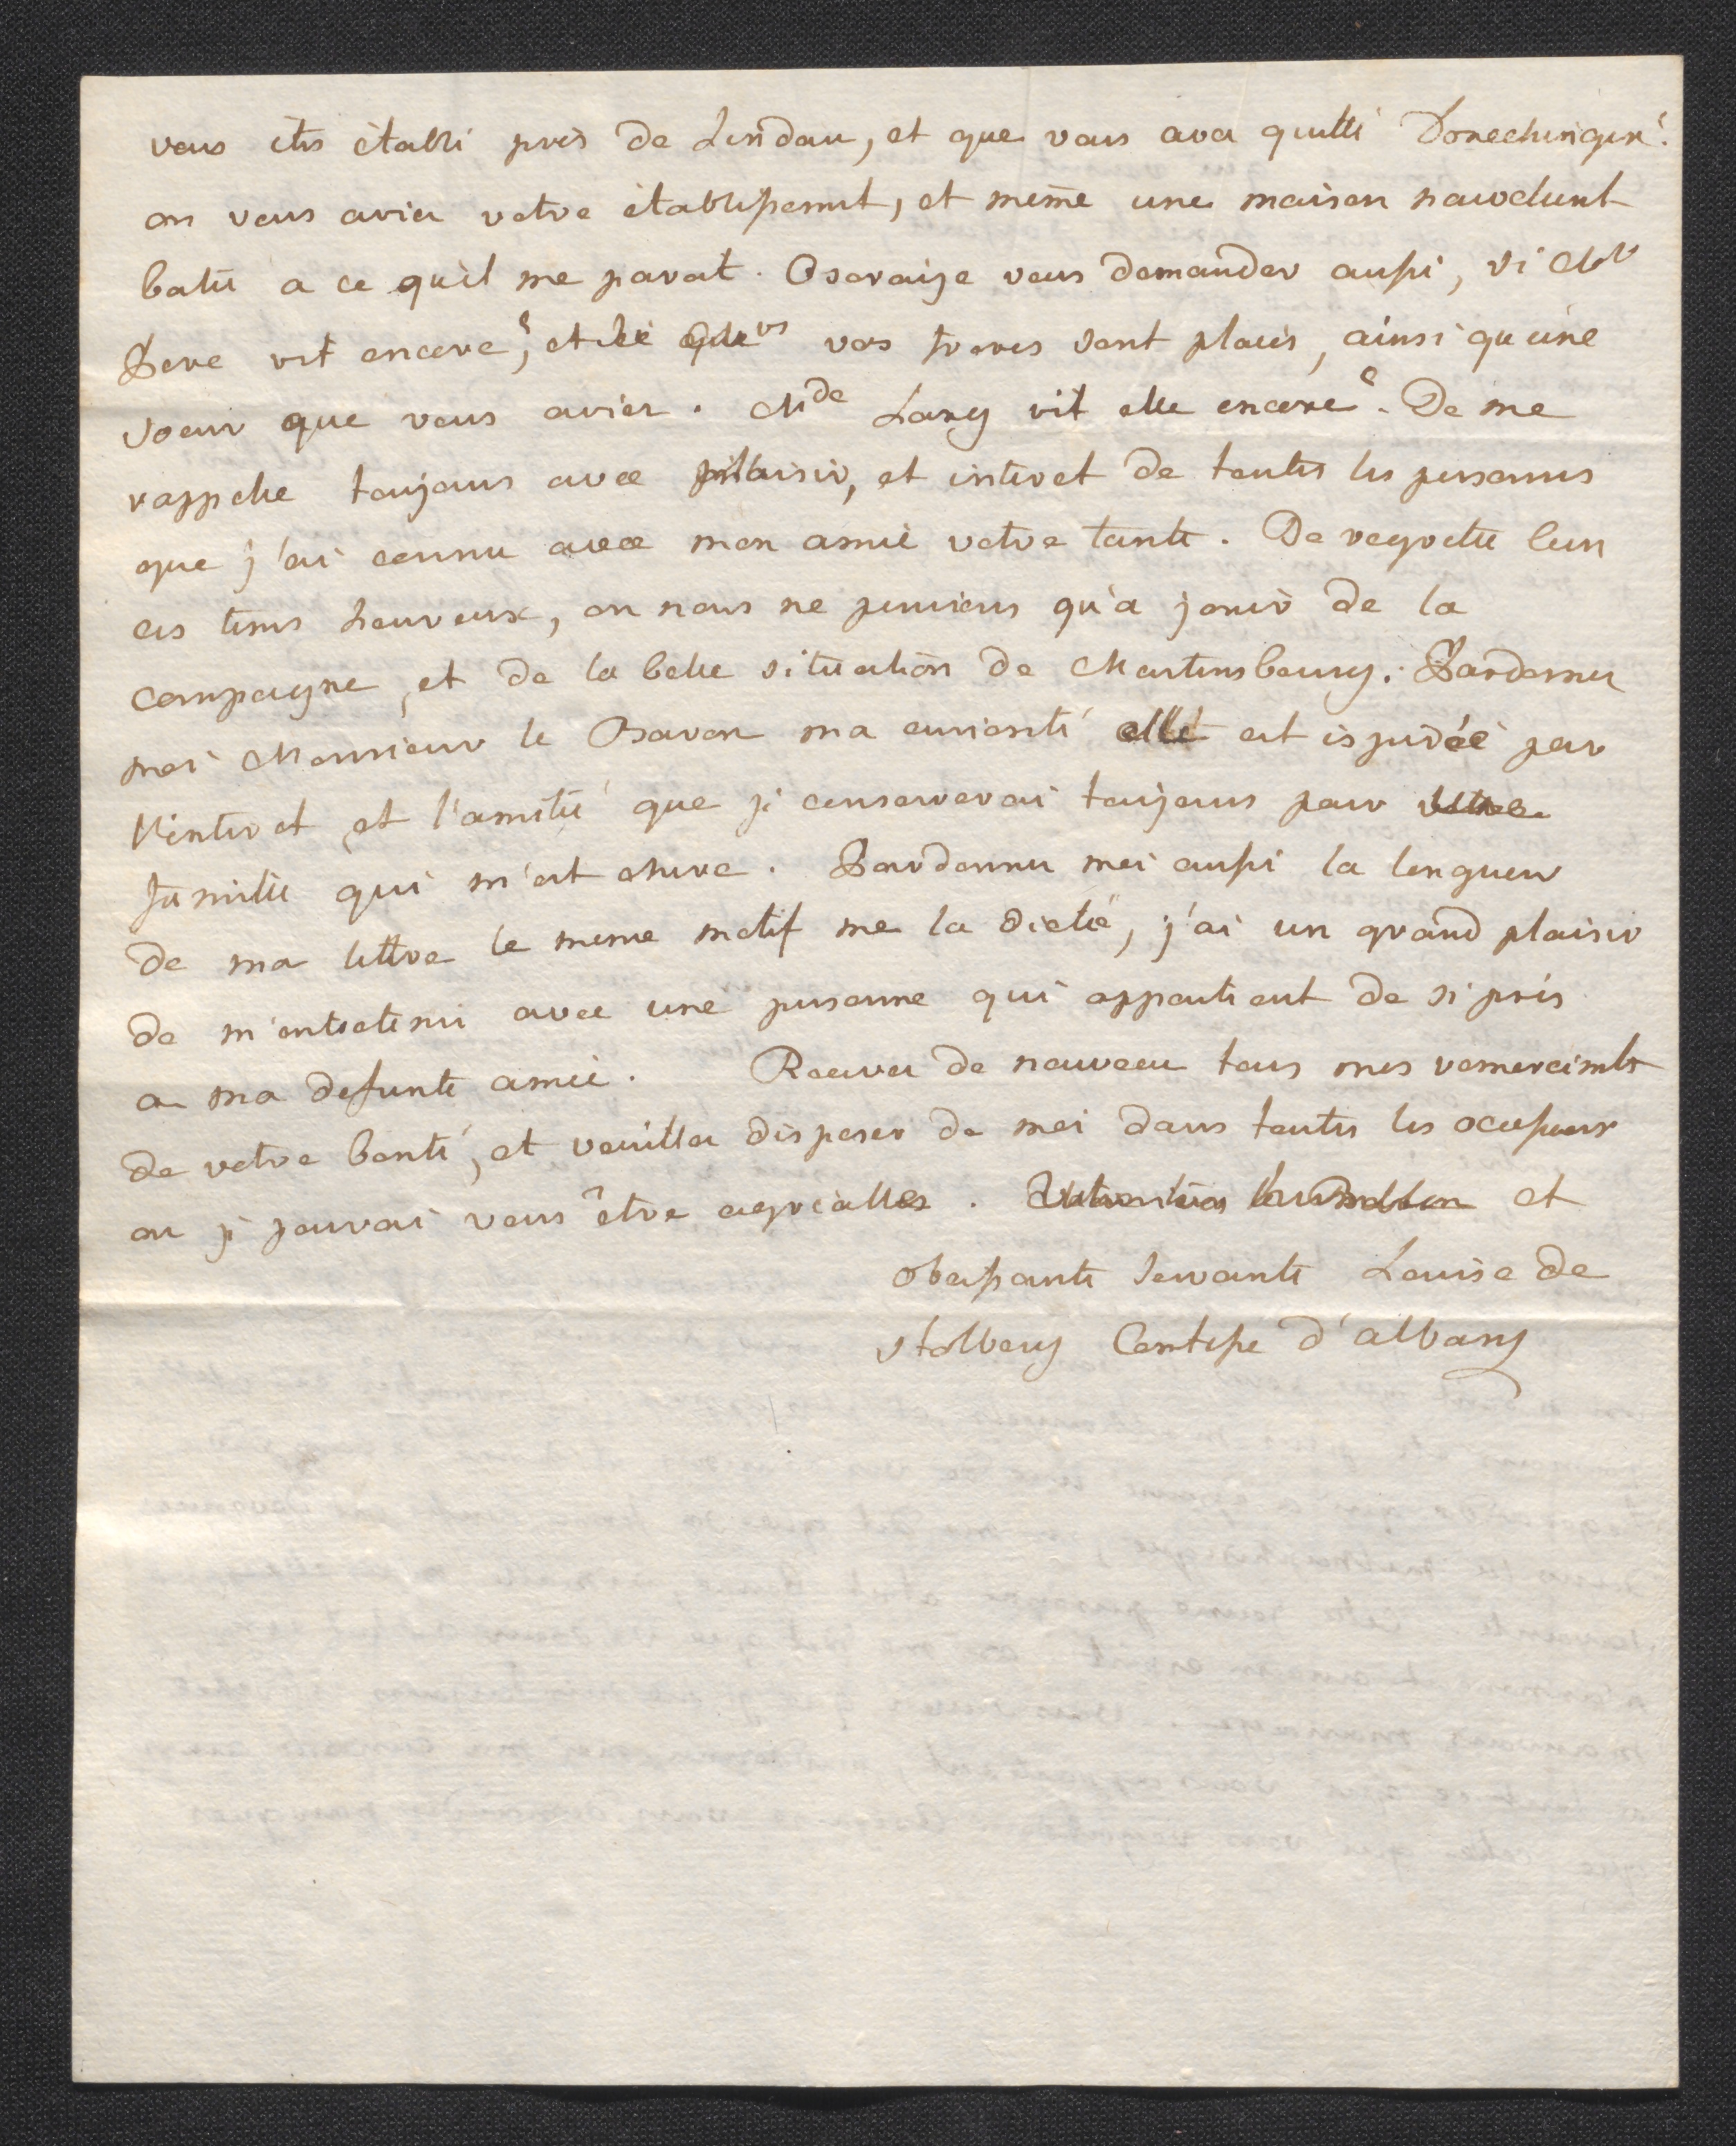 vous ètes ètabli près de Lindau, et que vous avez quitté Donechingen?
ou vous aviez votre ètablissement, et même une maison nouvelment
batie a ce qu'il me parait. Oseraije vous demander aussi, si Mr
Pere vit encore? et si vos freres sont placés, ainsi qu'une
soeur que vous aviez. Mde Lang vit elle encore? Je me
rappelle toujours avec plaisir, et interet de toutes les personnes
que j'ai connu avec mon amie votre tante. Je regrette bien
ces tems heureux, ou nous ne pensions qu'a jouir de la
campagne, et de la belle situation de Martinsbourg. Pardonnez
moi Monsieur le Baron ma curiosité elle est ispirée par
l'interet et l'amitié que je conserverai toujours pour votre
famille qui m'est chere. Pardonnez moi aussi la longueur
de ma lettre le meme motif me la dictée, j'ai un grand plaisir
de m'entretenir avec une personne qui appartient de si près
a ma defunte amie. Recevez de nouveau tous mes remercimts
de votre bonté, et veuillez disposer de moi dans toutes les
ou je pouvai vous être agréable. Votre très humble et
obeissante servante Louise de
Stolberg Contesse d'albany